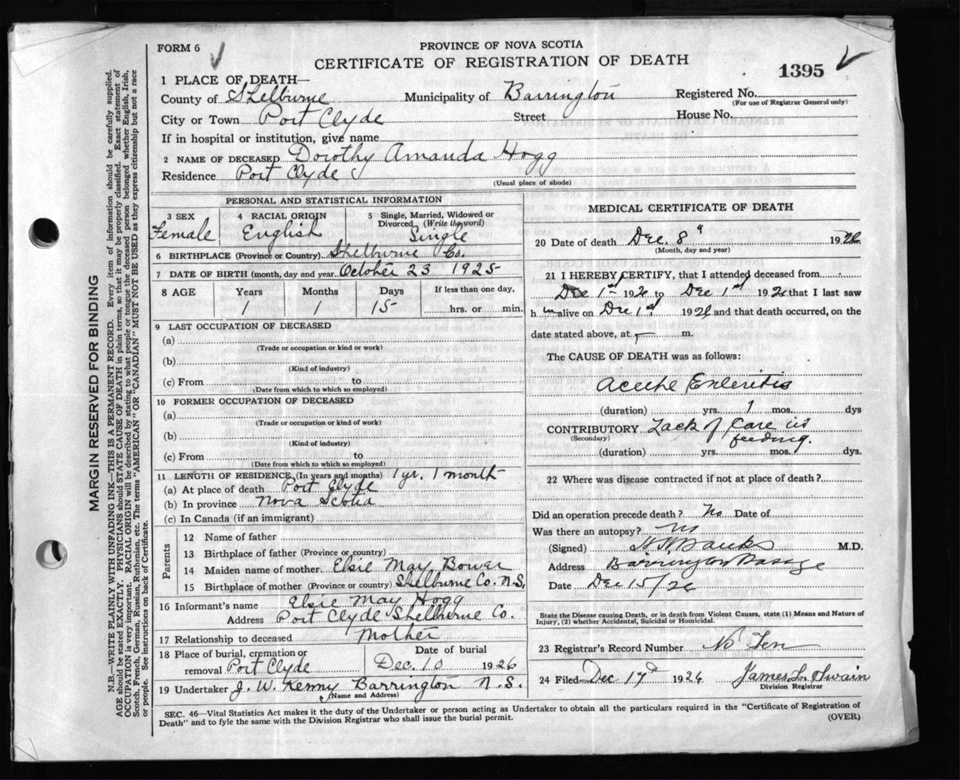 FORM 6
PROVINCE OF NOVA SCOTIA
CERTIFICATE OF REGISTRATION OF DEATH
1395
1 PLACE OF DEATH—
County of Shelburne Municipality of Barrington Registered No.
(For use of Registrar General only)
City or Town Port Clyde Street House No.
If in hospital or institution, give name
2 NAME OF DECEASED Dorothy Amanda Hogg
Residence Port Clyde
(Usual place of abode)
PERSONAL AND STATISTICAL INFORMATION
3 SEX
Female
4 RACIAL ORIGIN
English
5 Single, Married, Widowed or Divorced (Write the word)
Single
6 BIRTHPLACE (Province or Country) Shelburne Co.
7 DATE OF BIRTH (month, day and year. October 23 1925
8 AGE Years Months Days If less than one day,
1 1 15 hrs. or min.
9 LAST OCCUPATION OF DECEASED
(a)
(Trade or occupation or kind or work)
(b)
(Kind of industry)
(c) From to
(Date from which to which so employed)
10 FORMER OCCUPATION OF DECEASED
(a)
(Trade or occupation or kind of work)
(b)
(Kind of industry)
(c) From to
(Date from which to which so employed)
11 LENGTH OF RESIDENCE (In years and months) 1 yr. 1 month
(a) At place of death Port Clyde
(b) In province Nova Scotia
(c) In Canada (if an immigrant)
Parents
12 Name of father
13 Birthplace of father (Province or country)
14 Maiden name of mother. Elsie May Bower
15 Birthplace of mother (Province or country) Shelburne Co. N.S.
16 Informant's name Elsie May Hogg
Address Port Clyde Shelburne Co.
17 Relationship to deceased Mother
18 Place of burial, cremation or removal Port Clyde
Date of burial
Dec. 10 1926
19 Undertaker J. W. Kenny Barrington N.S.
(Name and Address)
MEDICAL CERTIFICATE OF DEATH
20 Date of death Dec. 8 1926
(Month, day and year)
21 I HEREBY CERTIFY, that I attended deceased from
Dec 1st 1926 to Dec 1st 1926 that I last saw
h m alive on Dec 1st 1926 and that death occurred, on the
date stated above, at m.
The CAUSE OF DEATH was as follows:
Acute Enteritis
(duration) yrs. 1 mos. dys
CONTRIBUTORY Lack of Care in feeding.
(Secondary)
(duration) yrs. mos. dys.
22 Where was disease contracted if not at place of death?
Did an operation precede death? No Date of
Was there an autopsy? No
(Signed) Banks M.D.
Address Barrington Passage
Date Dec 15/26
State the Disease causing Death, or in death from Violent Causes, state (1) Means and Nature of Injury, (2) whether Accidental, Suicidal or Homicidal.
23 Registrar's Record Number No Ten
24 Filed Dec 17th 1926 James L. Swain
Division Registrar
SEC. 46—Vital Statistics Act makes it the duty of the Undertaker or person acting as Undertaker to obtain all the particulars required in the "Certificate of Registration of
Death" and to fyle the same with the Division Registrar who shall issue the burial permit.
(OVER)
MARGIN RESERVED FOR BINDING
N.B.—WRITE PLAINLY WITH UNFADING INK—THIS IS A PERMANENT RECORD. Every item of information should be carefully supplied.
AGE should be stated EXACTLY. PHYSICIANS should STATE CAUSE OF DEATH in plain terms, so that it may be properly classified. Exact statement of
OCCUPATION is very important. RACIAL ORIGIN will be described by stating to what people or tongue the deceased person belonged whether English, Irish,
Scotch, French, German, Russian, Ruthenian, etc. The terms "AMERICAN" OR "CANADIAN" MUST NOT BE USED as they express citizenship but not a race
or people. See instructions on back of Certificate.